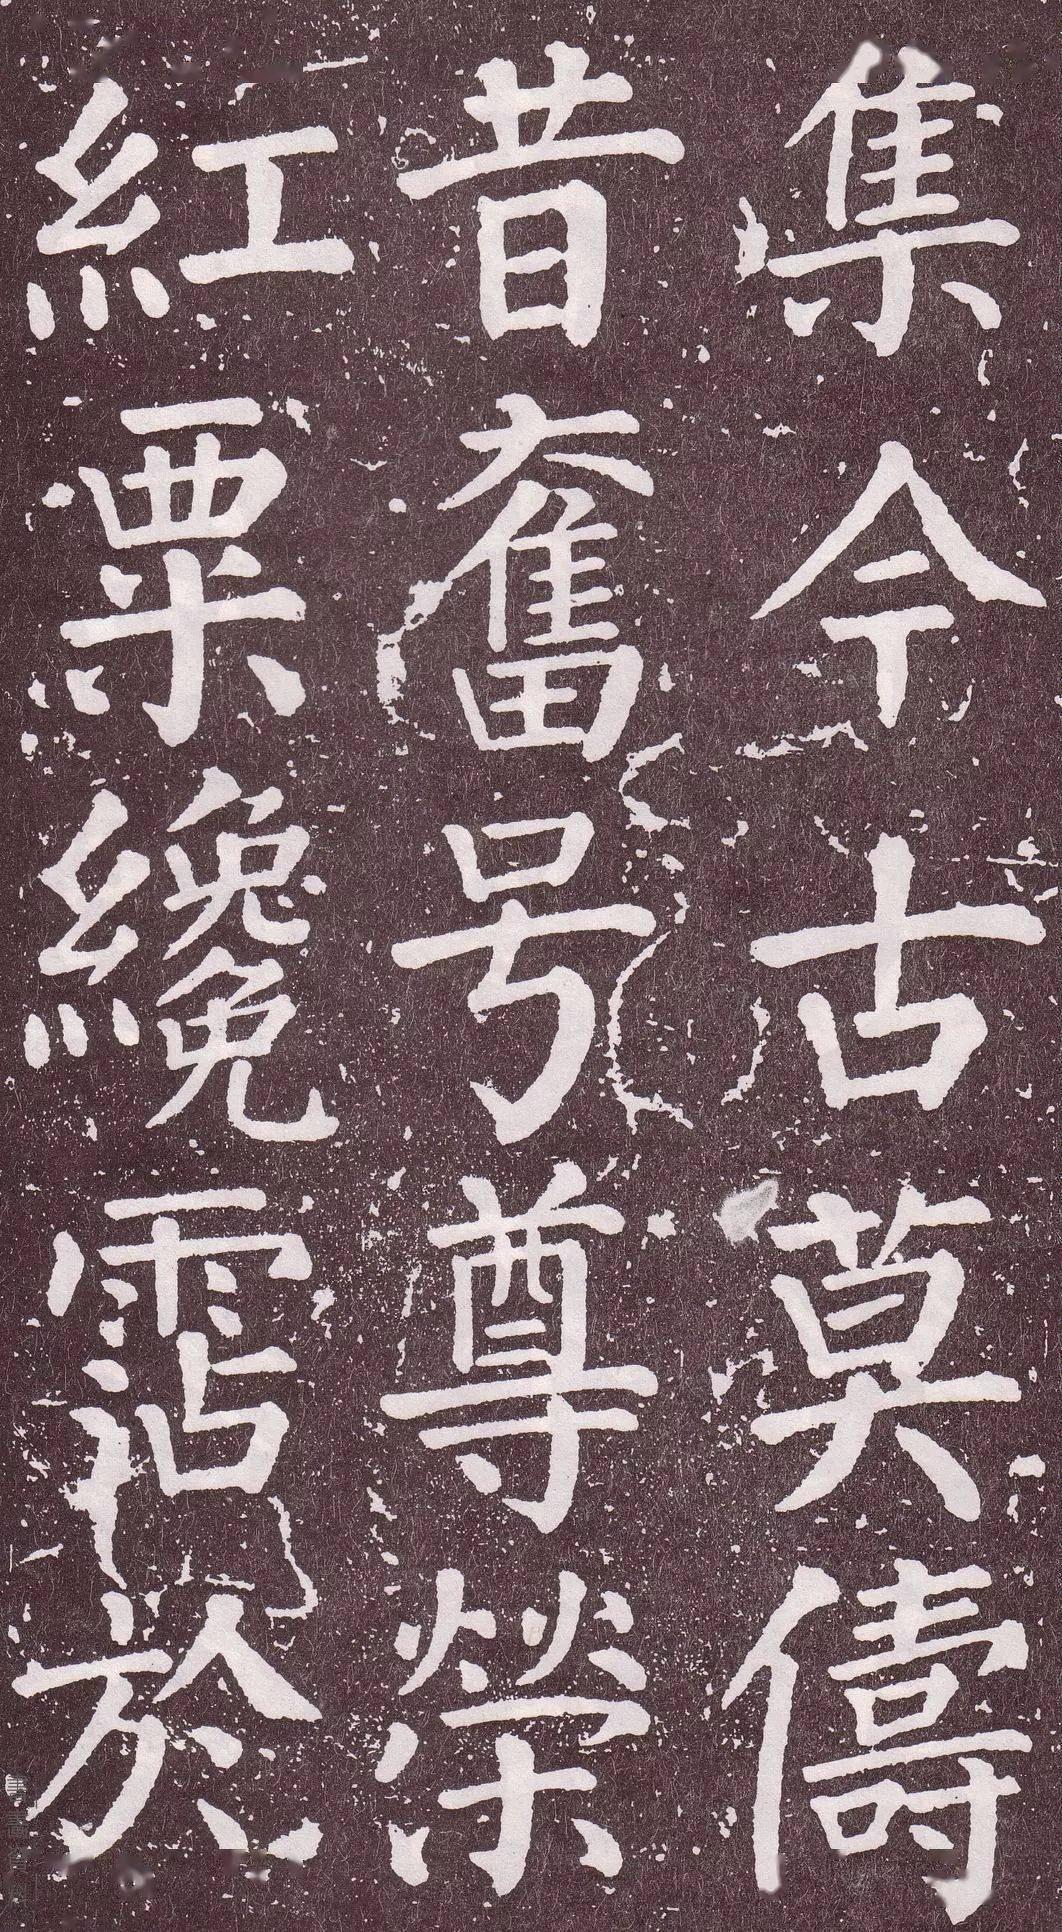 集今古莫儔
昔奮号尊榮
紅粟纔霑於